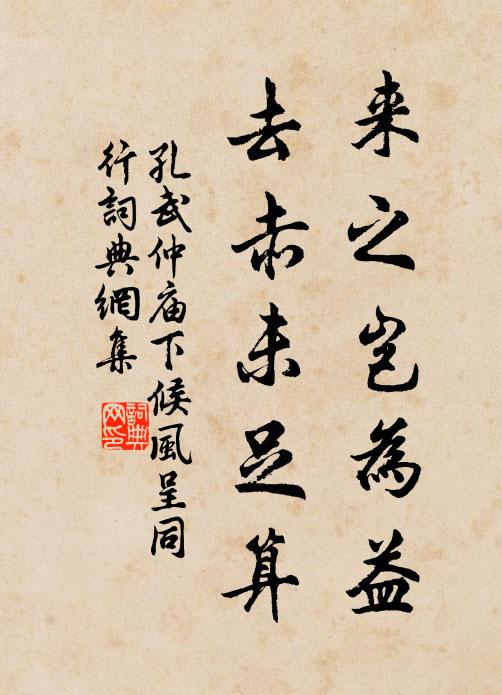 来之岂為益
去亦未足算
孔武仲庙下候風呈同
行詞典網集
詞典
网印